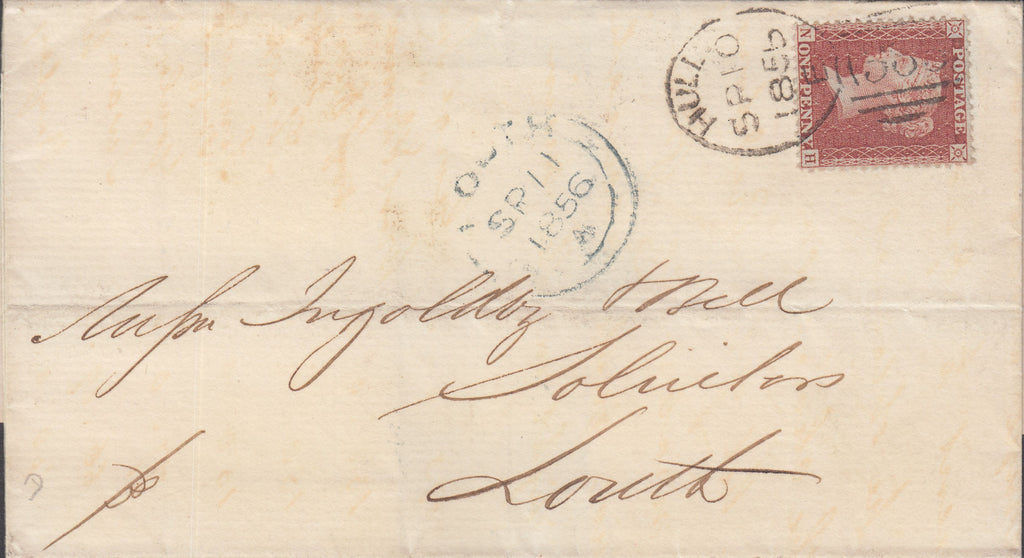 HULL
SP 10
1855
383
POSTAGE
ONE PENNY
N
H
LOUTH
SP 11
1856
Messrs Ingoldby & Bell
Solicitors
Louth